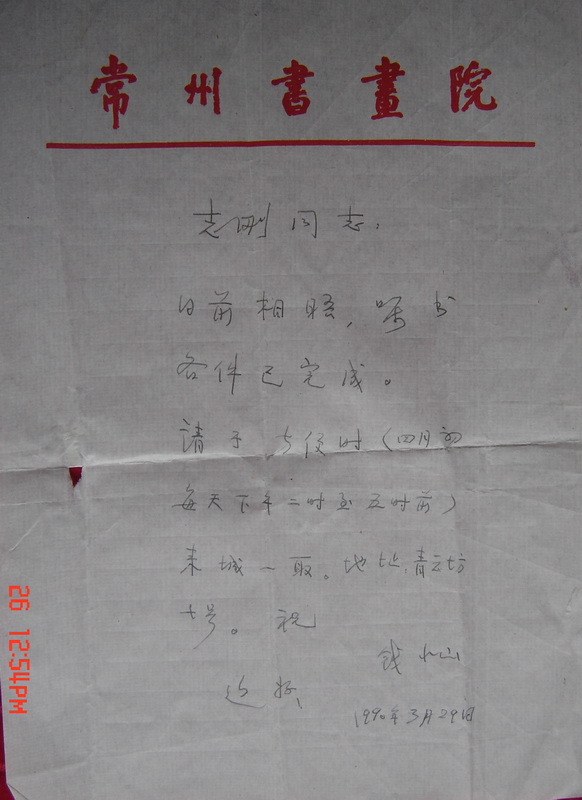 常州書畫院
志刚同志：
日前相晤，嘱书
各件已完成。
请于方便时（四月初
每天下午二时至五时前）
来城一取。地址：青云坊
七号。祝
近好
钱小山
1990年3月29日
26 12:54PM